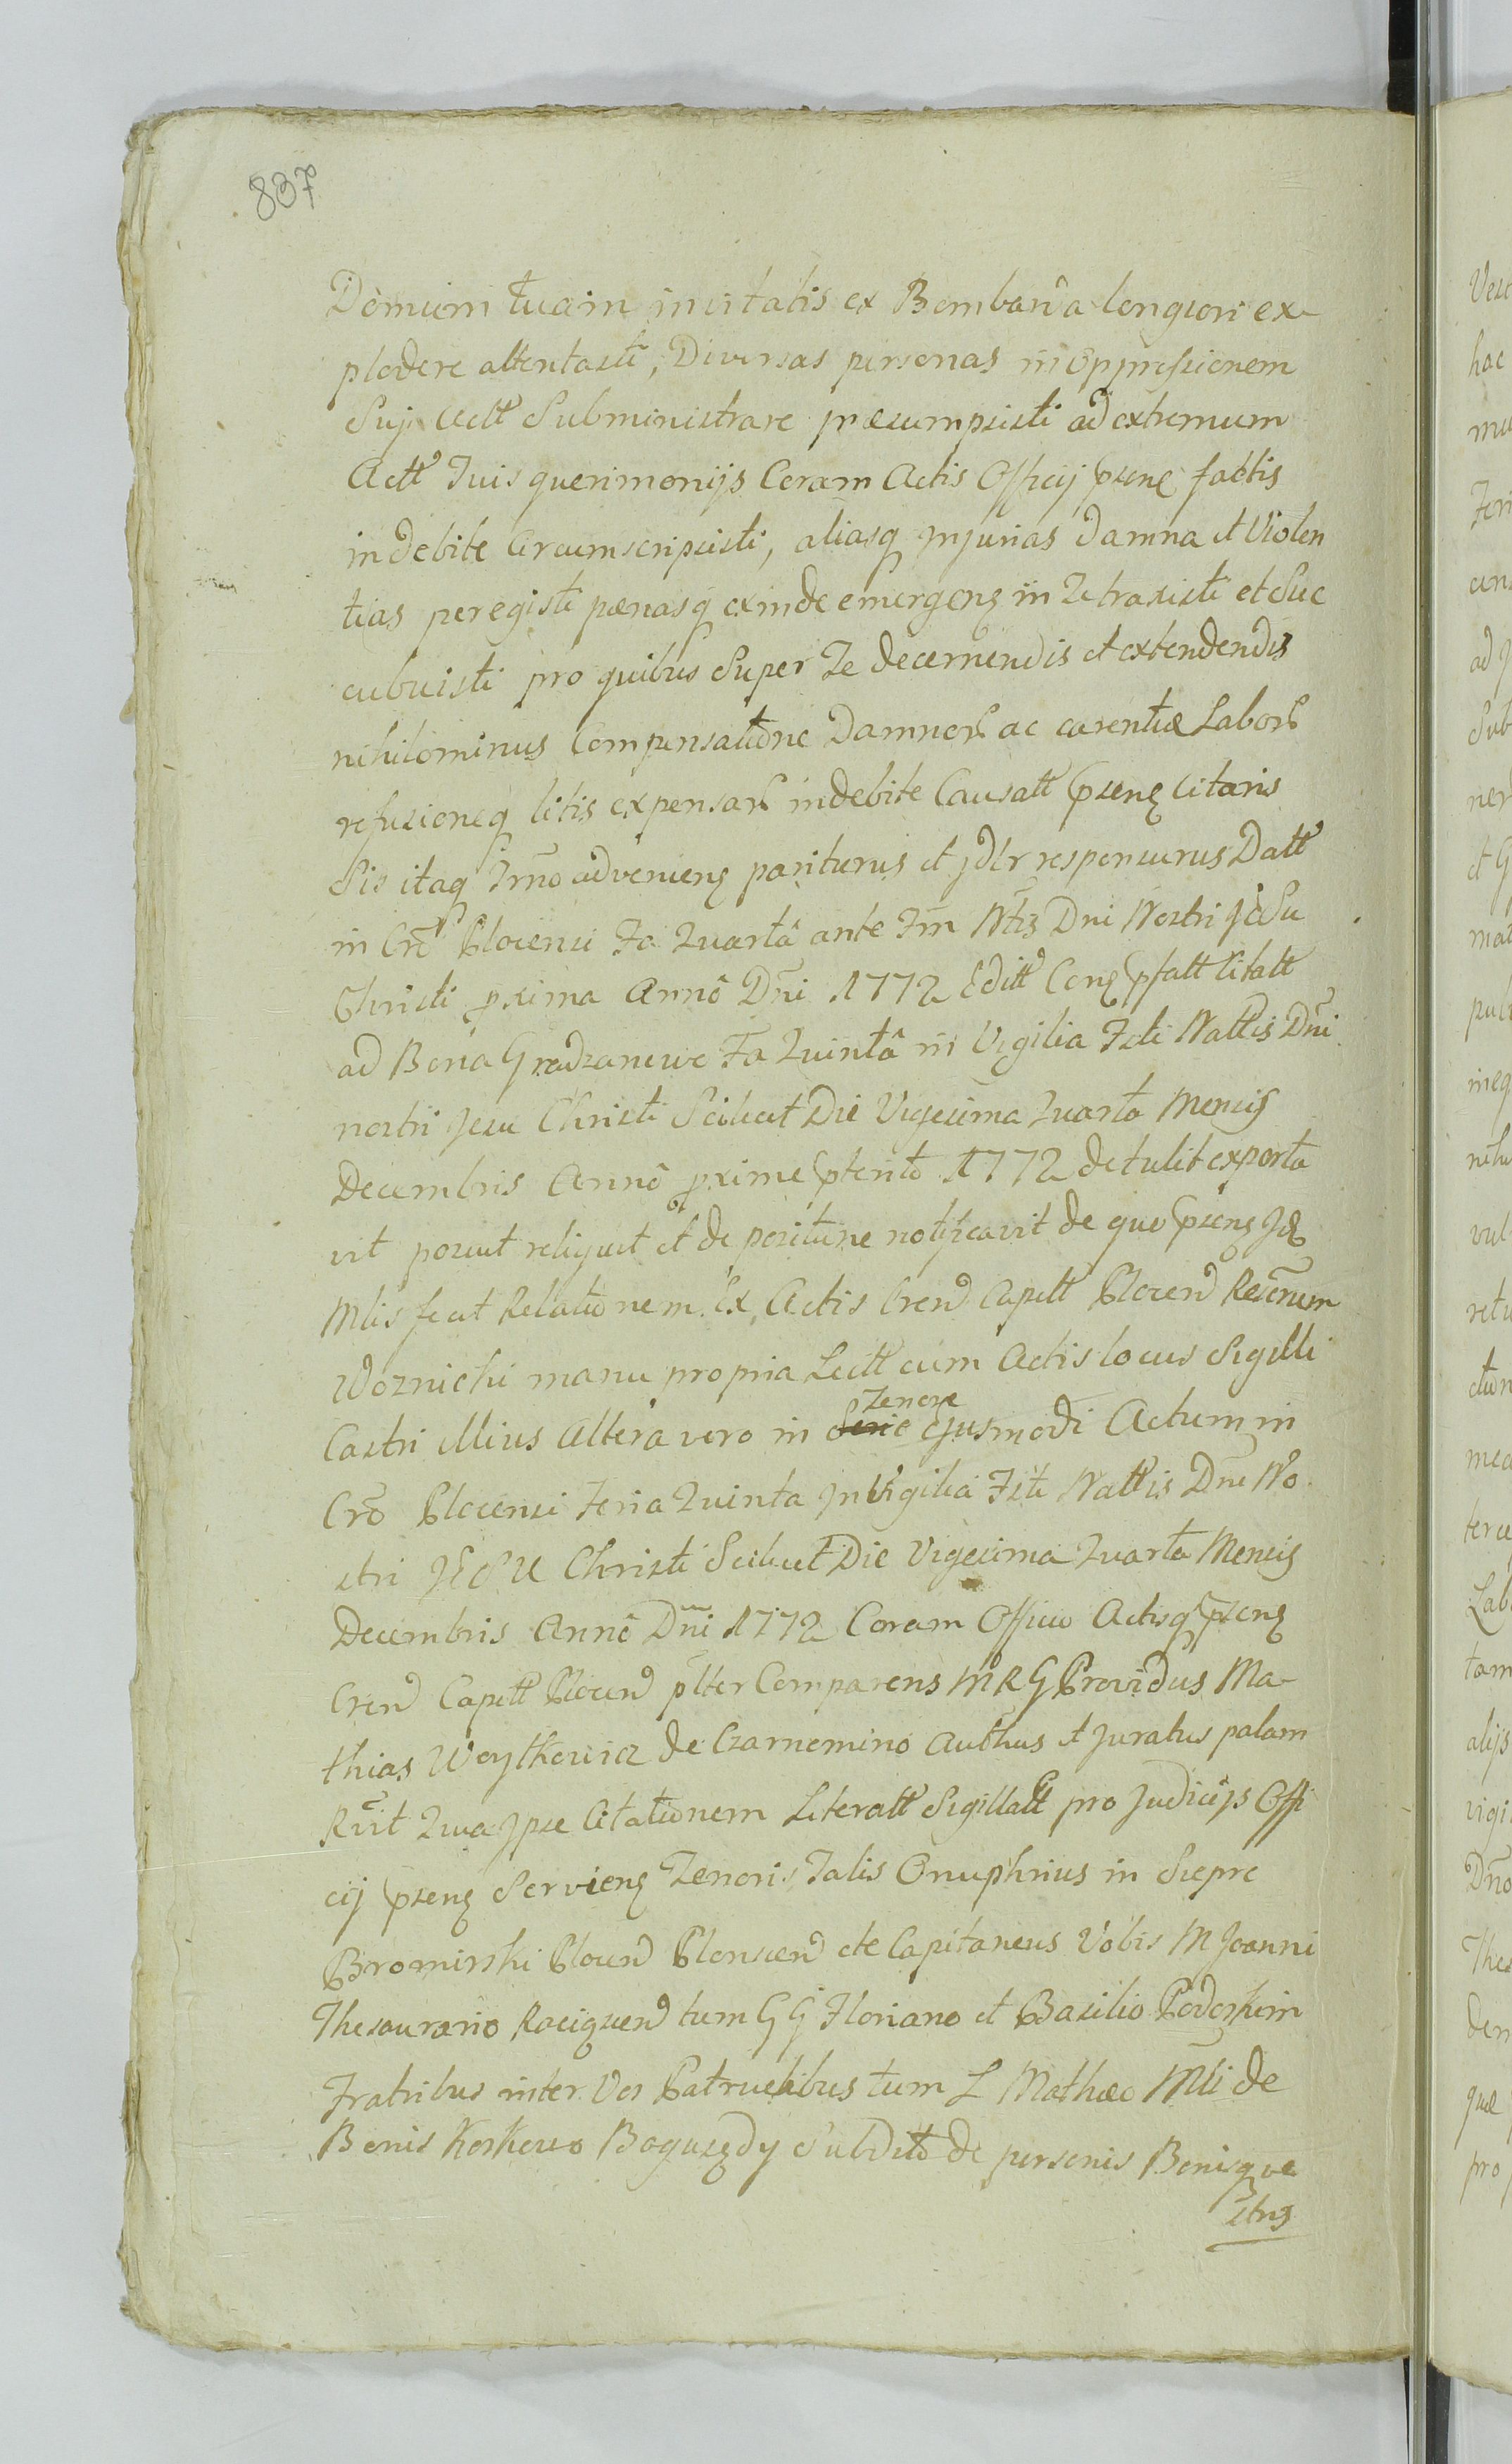 837
Domum tuam invitatis ex Bombarda longiori ex-
plodere attentasti, Diversas personas in oppressionem
Suj Actt Subministrare præsumpsisti ad extremum
Actt Suis querimonijs Coram Actis Officij psenꝫ factis
indebite Circumscripsisti, aliasq Injurias Damna et Violen
tias peregisti pænasq exinde emergenꝫ in Te traxisti et Suc
cubuisti pro quibus Super Te decernendis et extendendis
nihilominus Compensatione Damnor ac carentiæ Labor
refusioneq litis expensar indebite Causatt psenꝫ Citaris
Sis itaq Trno advenienꝫ pariturus et jdlr responsurus Datt
in Cro Plocensi Fa Quarta ante Fm Ntis Dni Nostri JESu
Christi pxima Anno Dni 1772 Editt Conꝫ pfatt Citatt
ad Bona Gradzanowo Fa Quinta in Vigilia Fsti Nattis Dni
nostri Jesu Christi Scilicet Die Vigesima Quarta Mensis
Decembris Anno pxime pterito 1772 detulit exporta
vit posuit reliquit et de positione notificavit de quo psenꝫ Jdꝫ
Mlis fecit Relationem Ex Actis Cren Captt Plocen Rescrum
Woznicki manu propria Lectt cum Actis locus Sigilli
Castri illius Altera vero in Serie Tenore ejusmodi Actum in
Cro Plocensi Feria Quinta in Vigilia Fsti Nattis Dni No
stri JESU Christi Scilicet Die Vigesima Quarta Mensis
Decembris Anno Dni 1772 Coram Officio Actisq psenꝫ
Cren Captt Plocen plter Comparens MRG Providus Ma-
thias Woytkowicz de Czarnomino Authus et Juratus palam
Rvit Quia Ipse Citationem Literatt Sigillatt pro Judicijs Offi
cij psenꝫ Servienꝫ Tenoris Talis Onuphrius in Siepre
Bromirski Plocen Plonscen etc Capitaneus Vobis M Joanni
Thesaurario Raciąszen tum G G Floriano et Basilio Podoskim
Fratribus inter Vos Patruelibus tum L Mathæo Mli de
Bonis Koskowo Boguszędy Subdito de personis Bonisq ve
stris